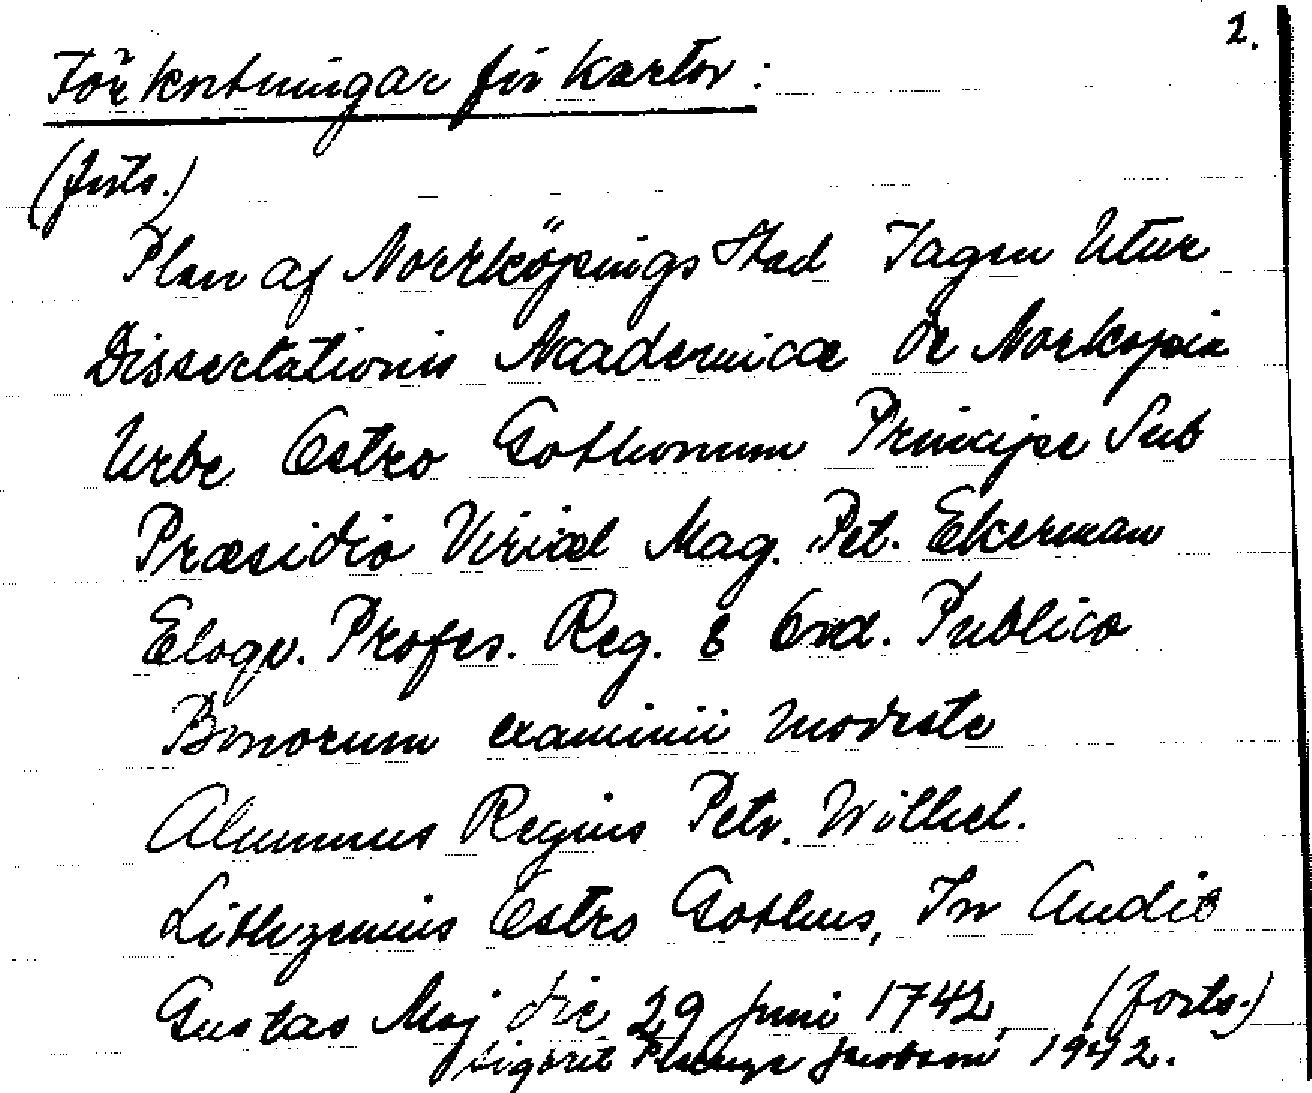 2.
Förkortningar för kartor:
(forts.)
Plan af Norrköpings Stad Tagen Utur
Dissertationis Academicæ De Norkopia
Urbe Ostro Gothorum Principe Sub
Præsidio Mag. Pet. Ekerman
Eloqv. Profes. Reg. & Ord. Publico
Bonorum examinii modeste
Alumnus Regius Petr. Wilhel.
Lithzenius Ostro Gothus, In Audit
Gustav Maj die 29 Juni 1742 (forts.)
1942.